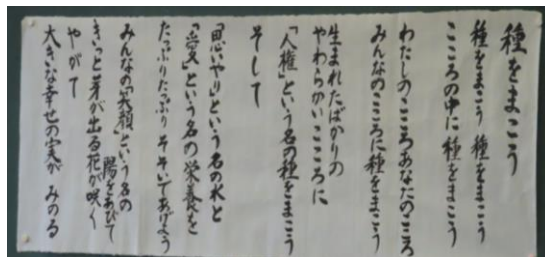 種をまこう
種をまこう 種をまこう
こころの中に 種をまこう
わたしのこころあなたのこころ
みんなのこころに種をまこう
生まれたばかりの
やわらかいこころに
「人権」という名の種をまこう
そして
「思いやり」という名の水と
「愛」という名の栄養を
たっぷりたっぷり そそいであげよう
みんなの「笑顔」という名の
陽をあびて
きっと芽が出る花が咲く
やがて
大きな幸せの実が みのる